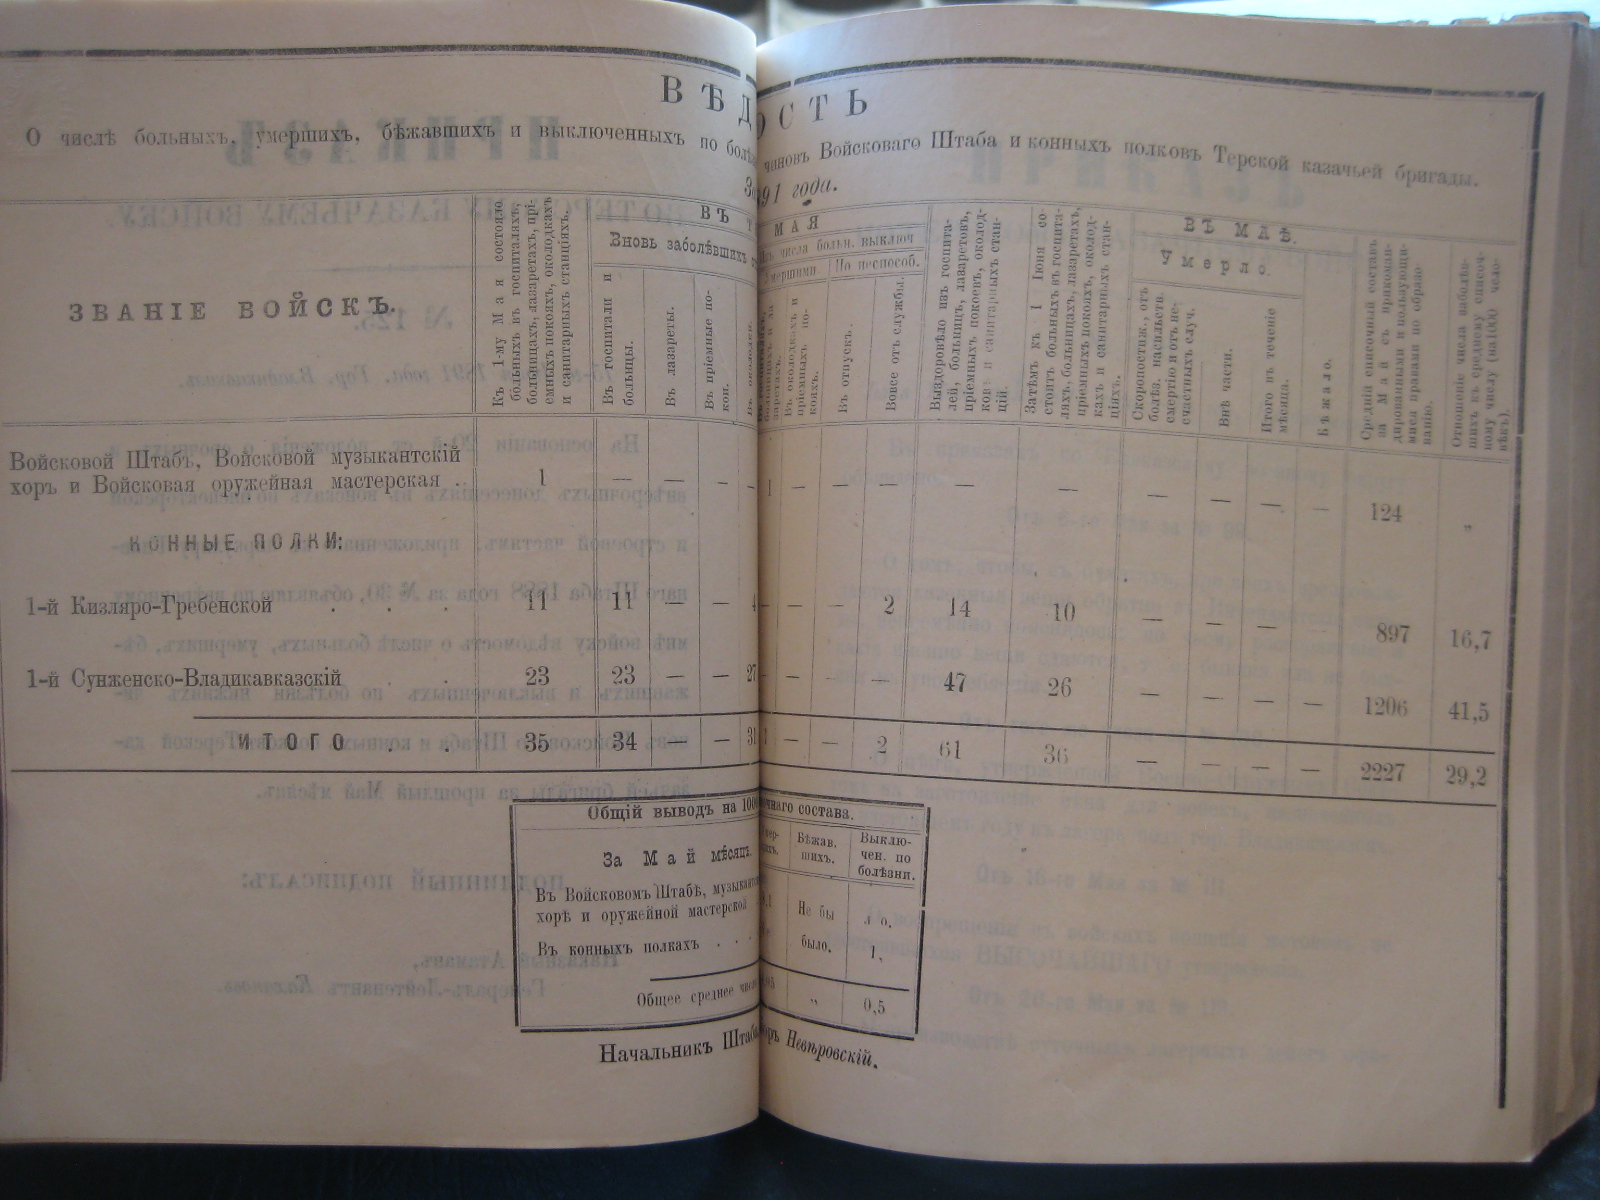 ВѢД ОСТЬ
О числѣ больныхъ, умершихъ, бѣжавшихъ и выключенныхъ по болѣ чиновъ Войсковаго Штаба и конныхъ полковъ Терской казачьей бригады.
За 91 года.
ЗВАНІЕ ВОЙСКЪ.
Къ 1-му Мая состояло
больныхъ въ госпиталяхъ,
больницахъ, лазаретахъ, прі-
емныхъ покояхъ, околодкахъ
и санитарныхъ станціяхъ.
ВЪ Т МАЯ
Вновь заболѣвшихъ
Въ госпитали и
больницы.
Въ лазареты.
Въ пріемные по-
кои.
числа больн. выключ
Умершими
По неспособ.
Въ околодкахъ и
пріемныхъ по-
кояхъ.
Въ отпускъ.
Вовсе отъ службы.
Выздоровѣло изъ госпита-
лей, больницъ, лазаретовъ,
пріемныхъ покоевъ, околод-
ковъ и санитарныхъ стан-
цій.
Затѣмъ къ 1 Іюня со-
стоитъ больныхъ въ госпита-
ляхъ, больницахъ, лазаретахъ,
пріемныхъ покояхъ, околод-
кахъ и санитарныхъ стан-
ціяхъ.
ВЪ МАѢ.
Умерло.
Скоропостиж., отъ
болѣз. насильств.
смертію и отъ не-
счастныхъ случ.
Внѣ части.
Итого въ теченіе
мѣсяца.
Бѣжало.
Средній списочный составъ
за Май съ прикоман-
дированными и пользующи-
мися правами по образо-
ванію.
Отношеніе числа заболѣв-
шихъ къ среднему списоч-
ному числу (на 1000 чело-
вѣкъ).
Войсковой Штабъ, Войсковой музыкантскій
хоръ и Войсковая оружейная мастерская . 1 — — — — 1 — — — — — — — — — 124 „
КОННЫЕ ПОЛКИ:
1-й Кизляро-Гребенской . . . 11 11 — — 4 — — — 2 14 10 — — — — 897 16,7
1-й Сунженско-Владикавказскій . . 23 23 — — 27 — — — — 47 26 — — — — 1206 41,5
ИТОГО . . 35 34 — — 31 1 — — 2 61 36 — — — — 2227 29,2
Общій выводъ на 1000 чнаго состава.
За Май мѣсяцъ.
Бѣжав-
шихъ.
Выклю-
чен. по
болѣзни.
Въ Войсковомъ Штабѣ, музыкант
хорѣ и оружейной мастерской Не бы л о.
Въ конныхъ полкахъ . . . было. 1,
Общее среднее число „ 0,5
Начальникъ Штаба оръ Невѣровскій.